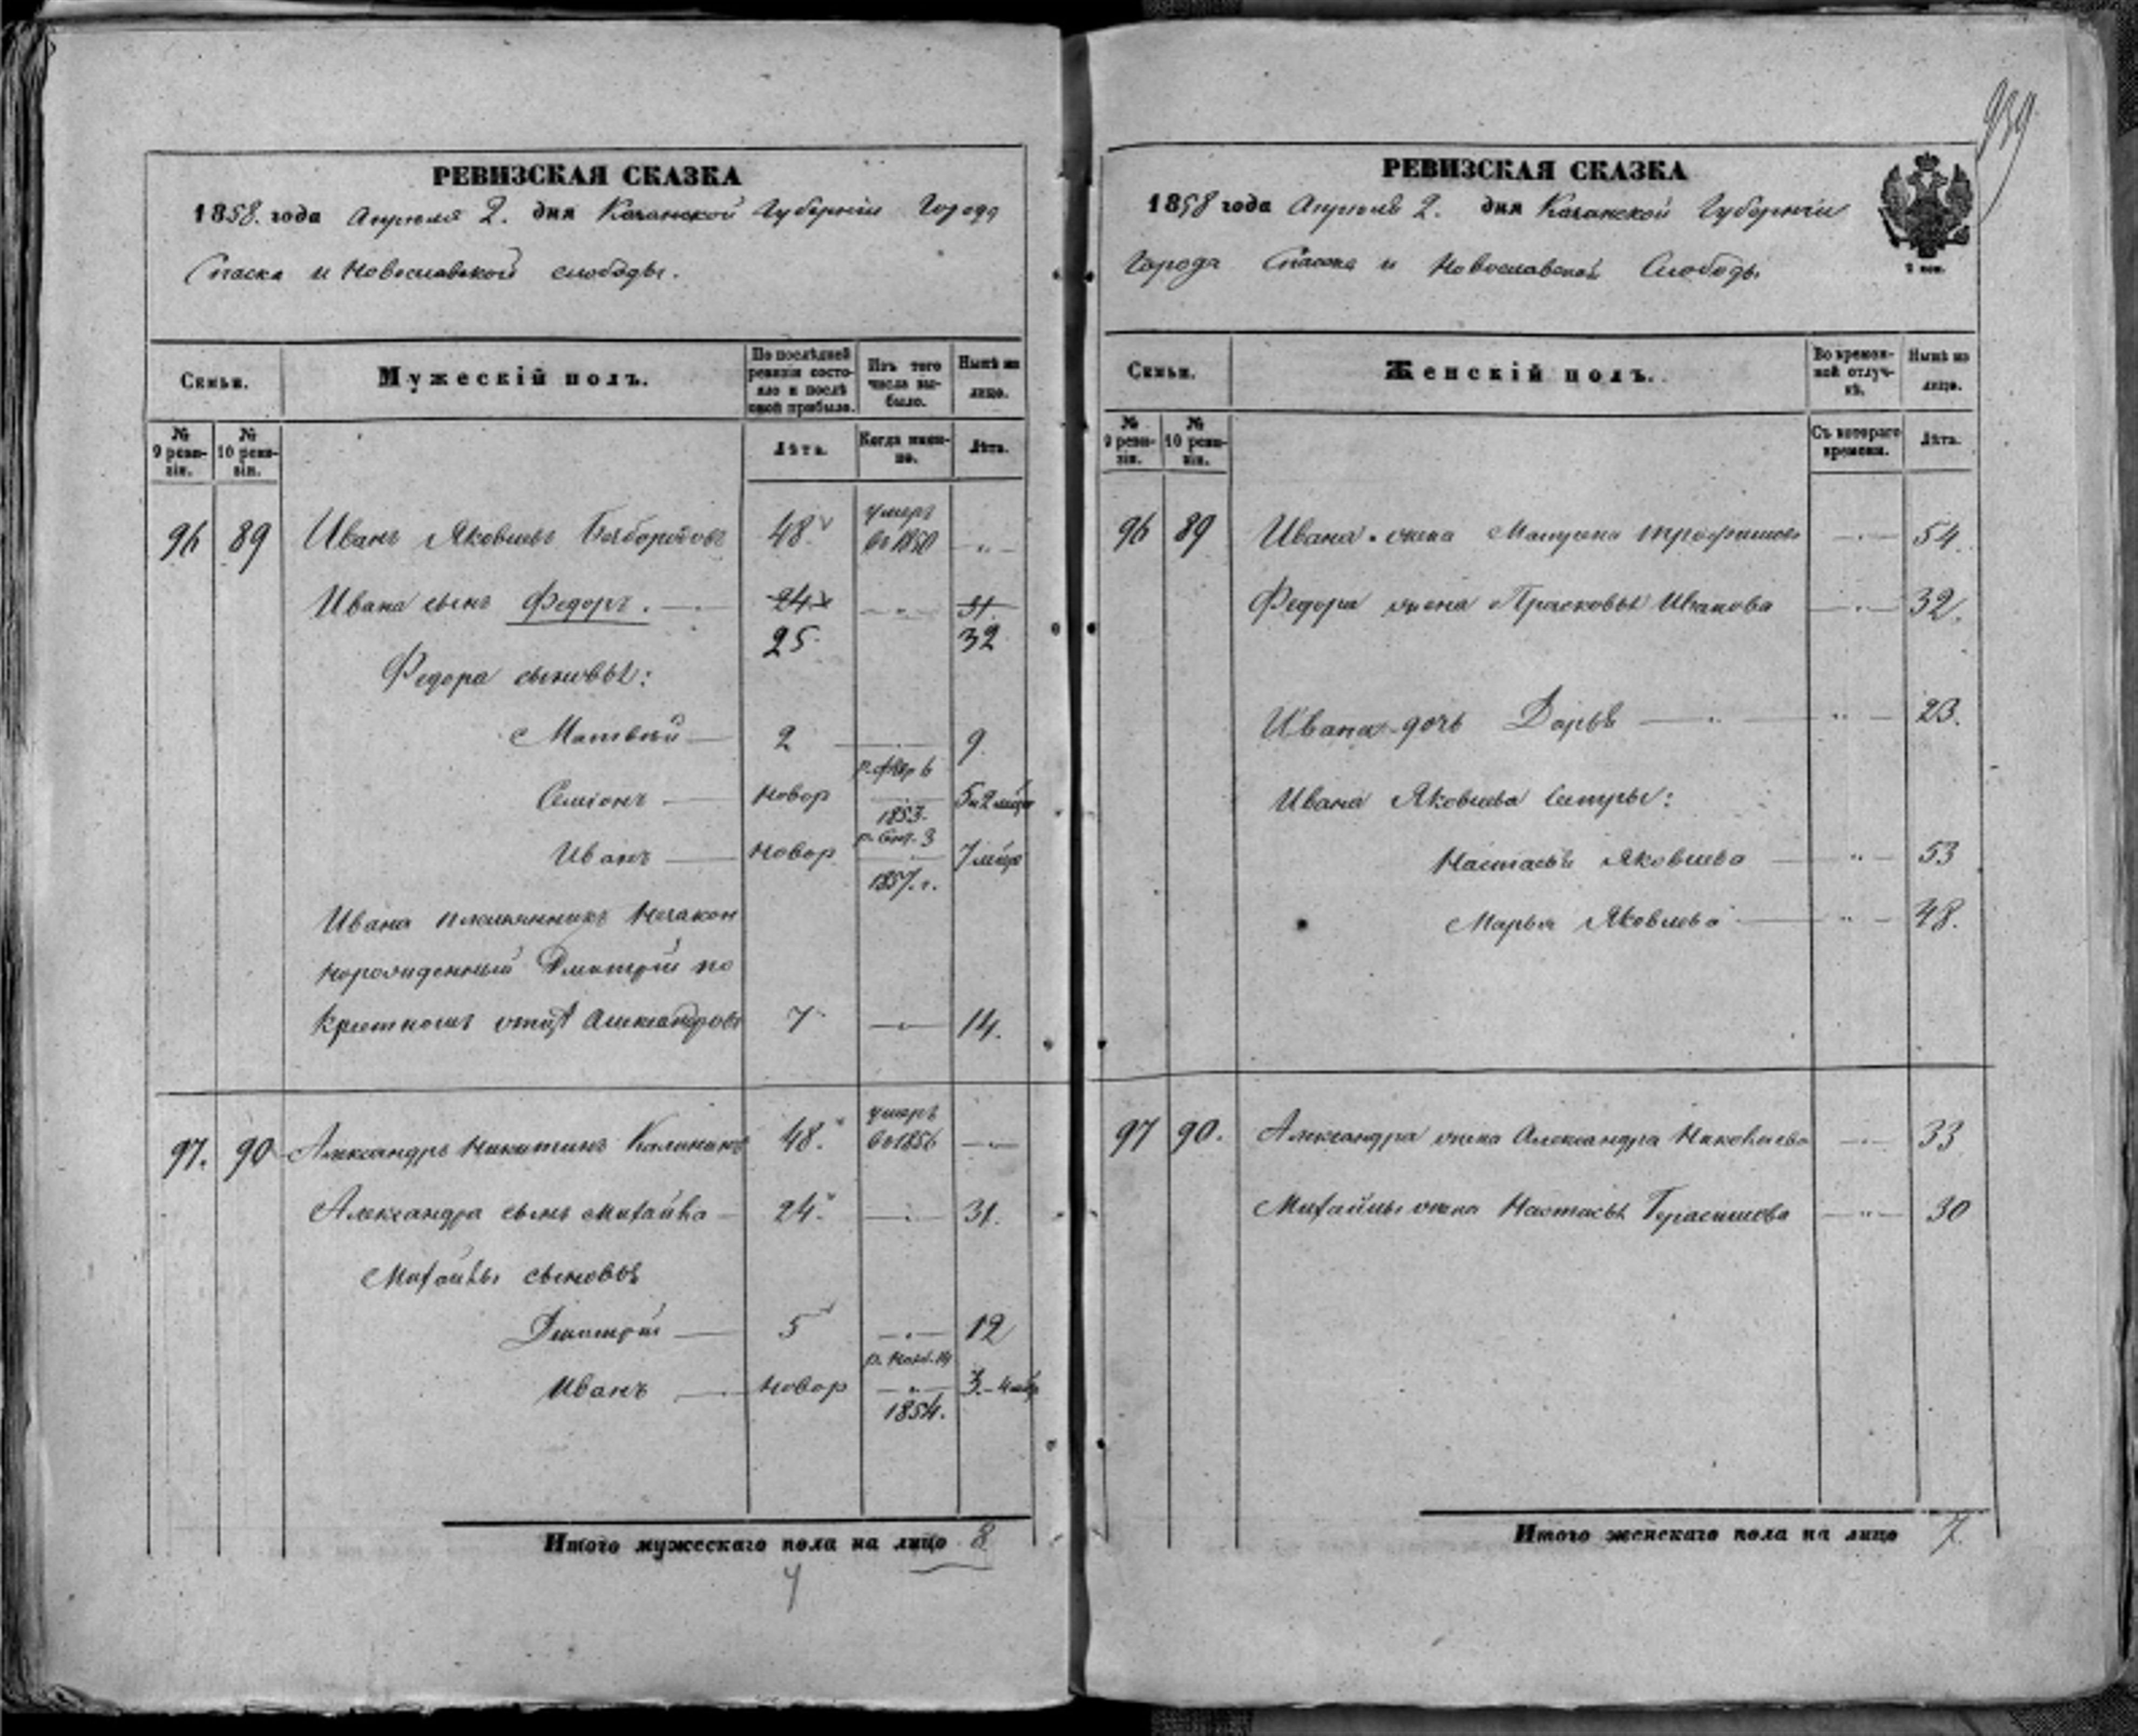 939
РЕВИЗСКАЯ СКАЗКА
1858. года Апреля 2. дня Казанской Губерніи Города
Спаска и Новоспавской слободы.
Семьи.
Мужескій полъ.
По послѣдней ревизіи состояло и послѣ оной прибыло.
Изъ того числа выбыло.
Нынѣ на лицо.
№ 9 ревизіи.
№ 10 ревизіи.
Лѣта.
Когда именно.
Лѣта.
96 89 Иванъ Яковлевъ 48 умеръ въ 1850 — " —
Ивана сынъ Федоръ. — 24 — " — 31
25 32
Федора сыновья:
Матвѣй — 2 — " — 9.
Семіонъ — Новор р. Февр 6 1853. 5 и 2 мѣся
Иванъ — Новор р. Сент. 3 1857. г. 7 мѣся
Ивана племянникъ Незакон
норожденный Дмитрій по
крестному отцу Александровъ 7 — " — 14.
97. 90 Александръ Никитинъ Калининъ 48. умеръ въ 1856 — " —
Александра сынъ Михайла — 24. — " — 31.
Михайлы сыновья
Дмитрій — 5 — " — 12
Иванъ — Новор р. Нояб. 1854. 3 — 4 мѣся
Итого мужескаго пола на лицо 8
РЕВИЗСКАЯ СКАЗКА
1858 года Апреля 2. дня Казанской Губерніи
Города Спаска и Новоспавской Слободы
2 коп.
Семьи.
Женскій полъ.
Во временной отлучкѣ.
Нынѣ на лицо.
№ 9 ревизіи.
№ 10 ревизіи.
Съ котораго времени.
Лѣта.
96 89 Ивана жена Трофимова — " — 54.
Федора жена Прасковья Иванова — " — 32.
Ивана дочь Дарья — " — 23.
Ивана Яковлева сестры:
Настасья Яковлева — " — 53
Марья Яковлева — " — 48.
97 90. Александра жена Александра Николаева — " — 33
Михайлы жена Настасья Герасимова — " — 30
Итого женскаго пола на лицо 7.